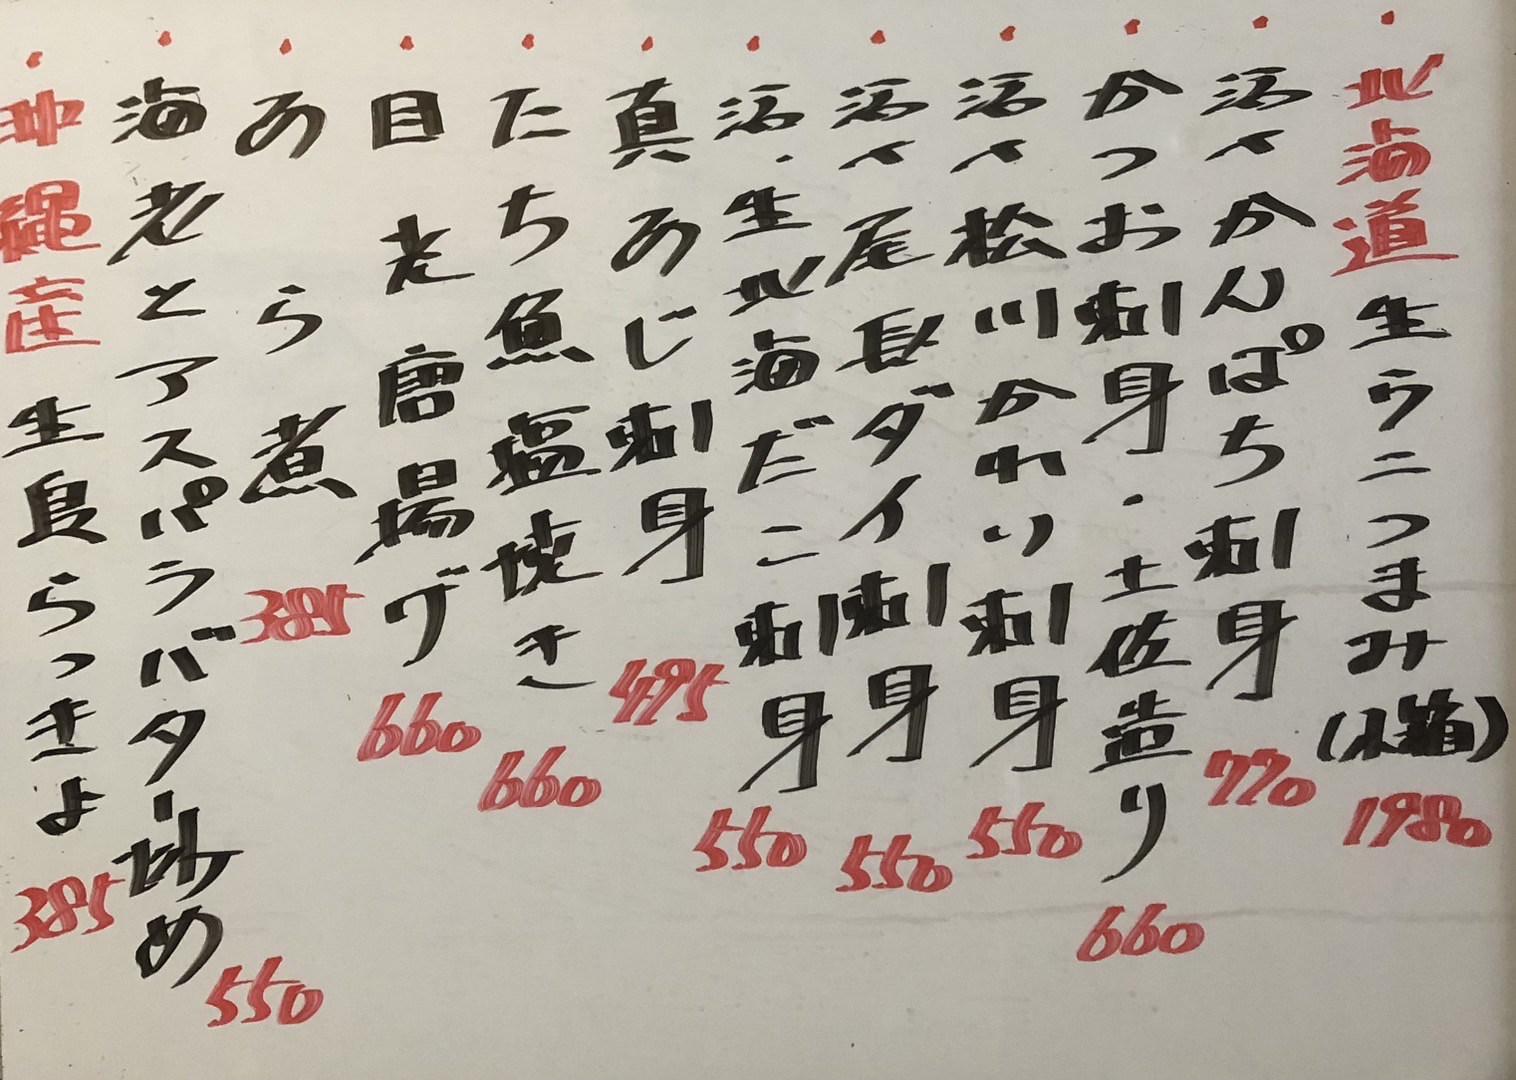 ・北海道生ウニつまみ(木箱) 1980
・活〆かんぱち刺身 770
・かつお刺身・土佐造り 660
・活〆松川かれい刺身 550
・活〆尾長ダイ刺身 550
・活・生北海だこ刺身 550
・真あじ刺身 495
・たち魚塩焼き 660
・目光唐揚げ 660
・あら煮 385
・海老とアスパラバター炒め 550
・沖縄産生島らっきょ 385